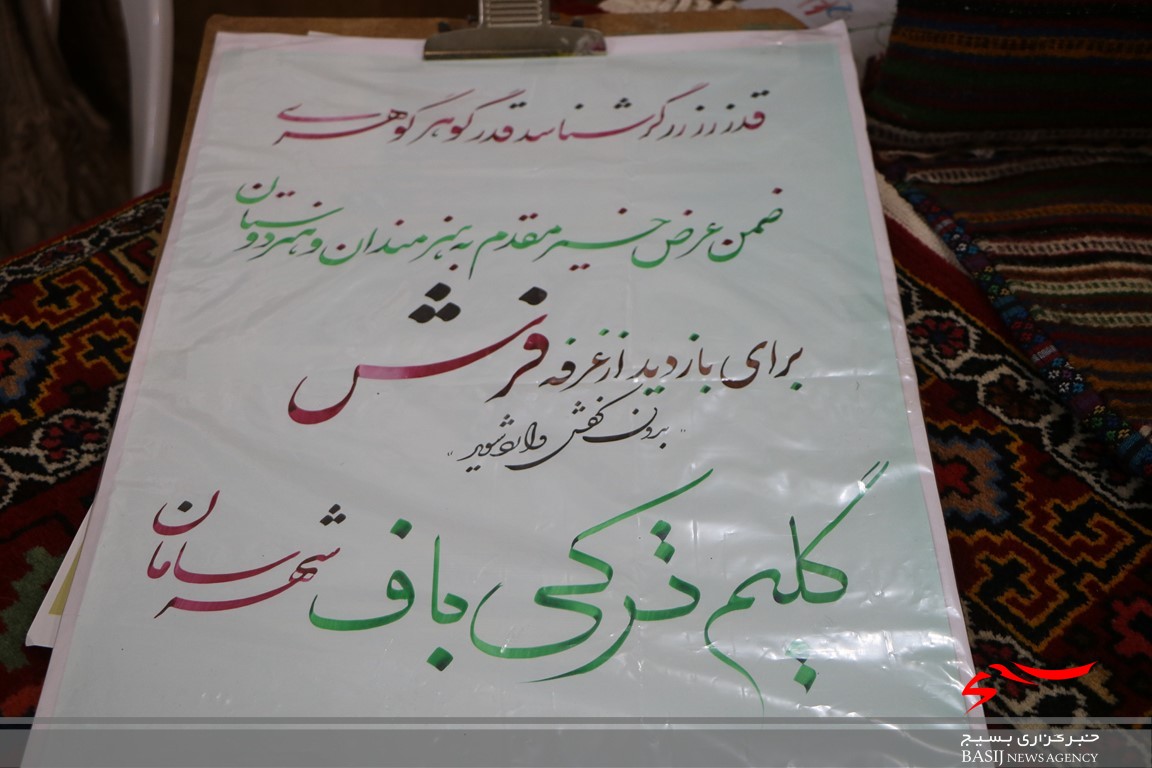 قدر زر زرگر شناسد قدر گوهر گوهری
ضمن عرض خیر مقدم به هنرمندان و هنردوستان
برای بازدید از غرفه فرش
"بدون کفش وارد شوید"
گلیم ترکی باف شهر سامان
بسیج
خبرگزاری بسیج
BASIJ NEWS AGENCY